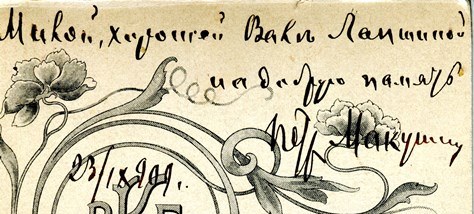 Милой, хорошей Вале Лапшиной
на добрую память
Петр Макушин
23/IX 909 г.